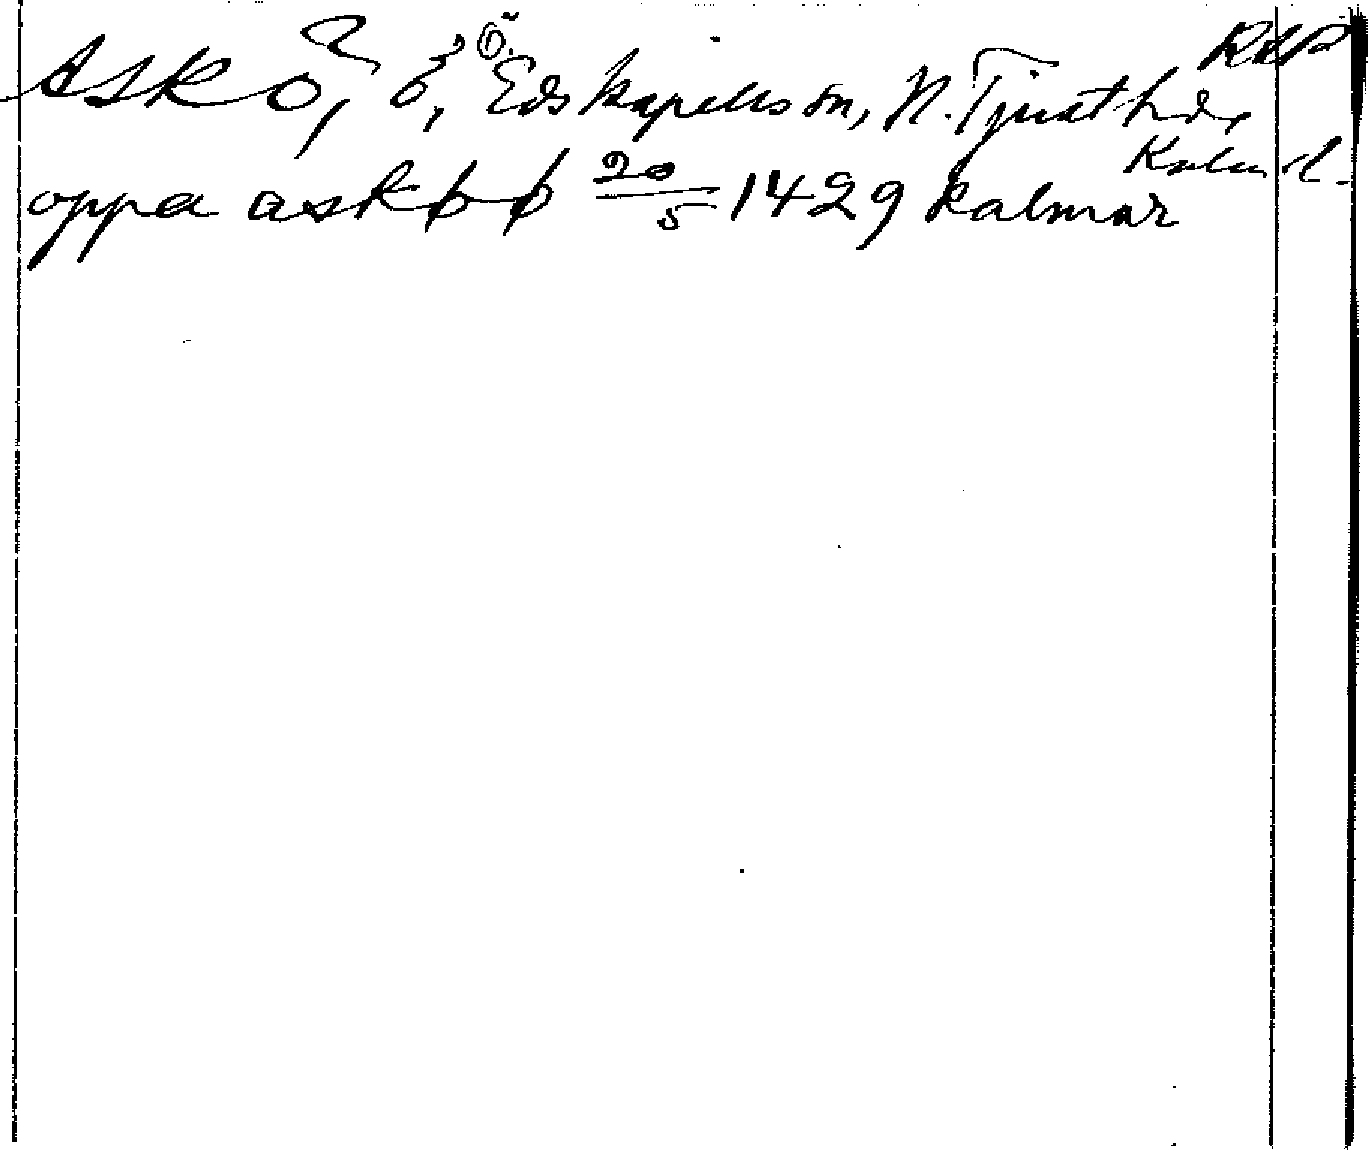 Askö, ö, Ö. Eds kapellsfn, N. Tjust hd, RAP
Kalm. l.
oppa askøø 20/5 1429 Kalmar